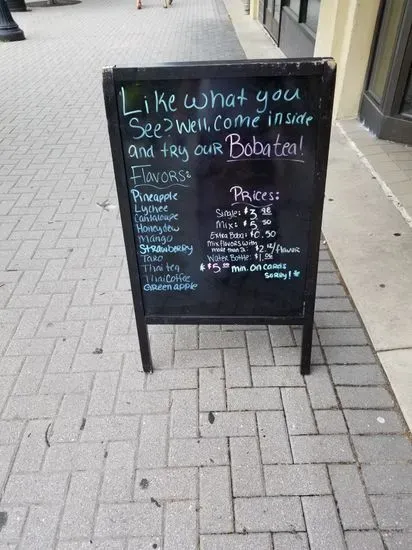 Like what you
See? Well, Come inside
and try our Boba tea!
Flavors:
Pineapple
Lychee
Cantaloupe
Honeydew
Mango
Strawberry
Taro
Thai tea
Thai Coffee
Green apple
Prices:
Single: $3.98
Mix: $5.50
Extra Boba: $0.50
Mix flavors with
more than 2: $2.12/flavor
Water Bottle: $1.06
* $5.00 min. on cards
sorry! *